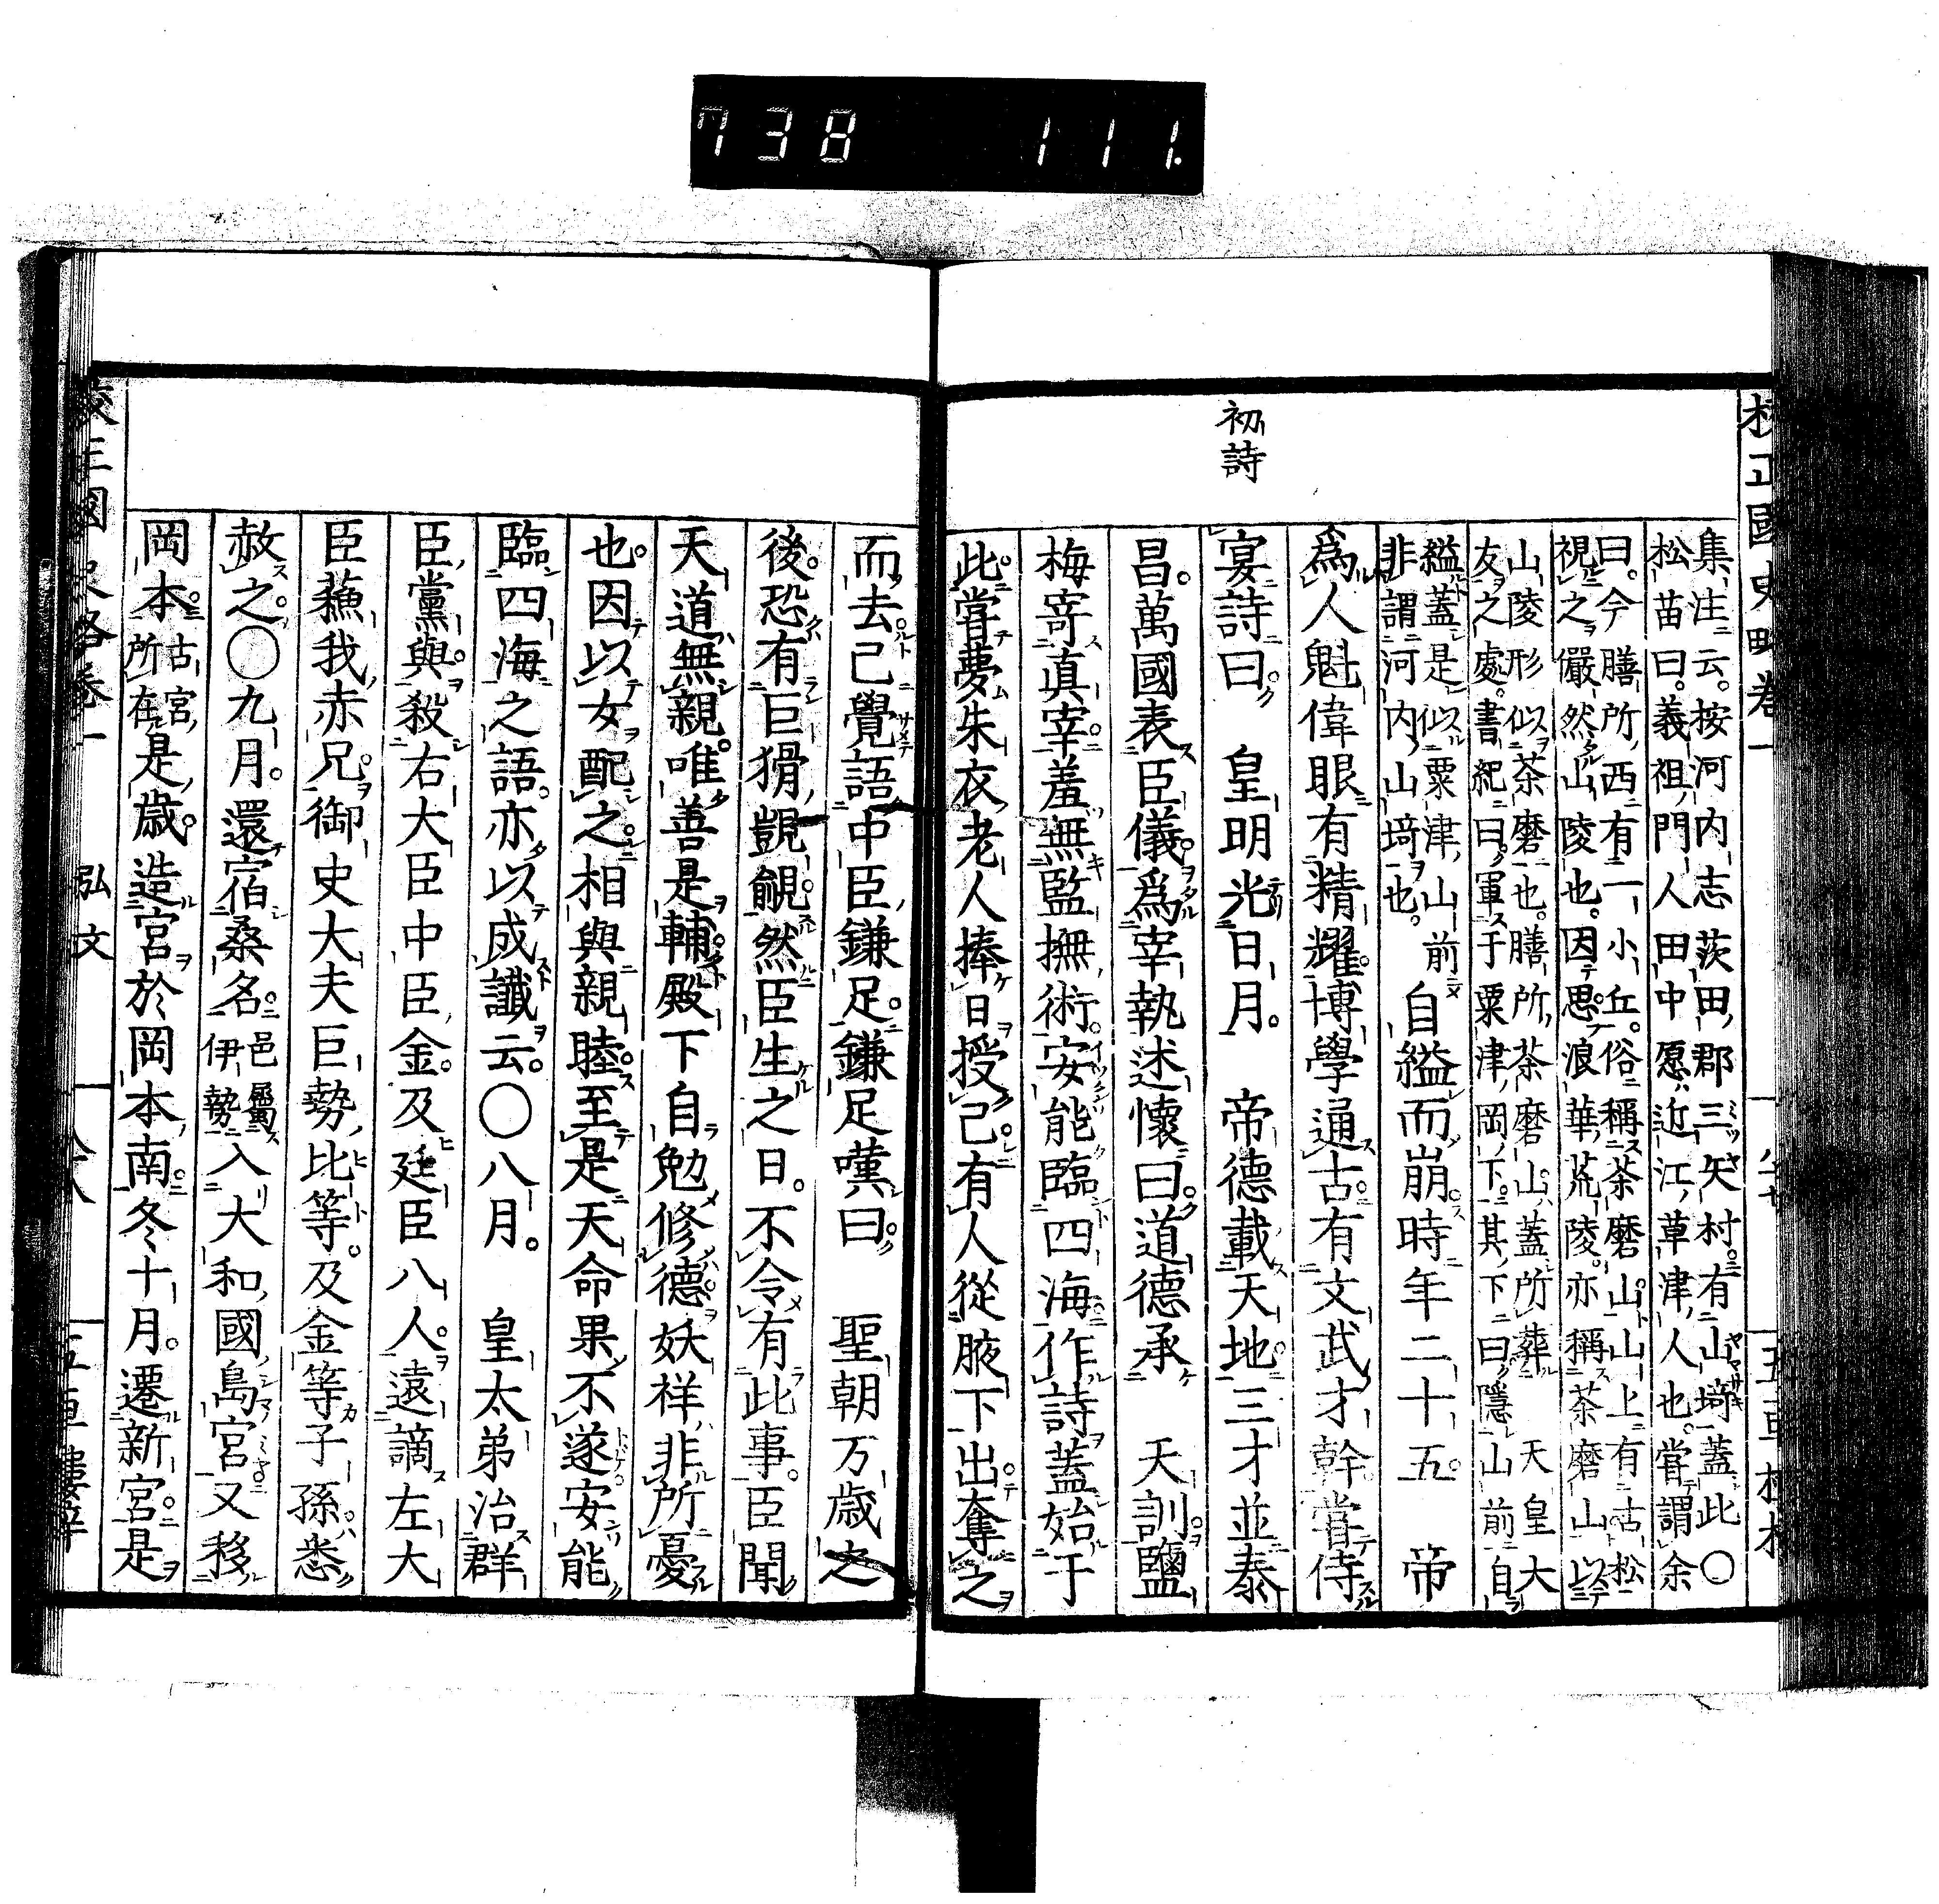 738 111.
校正國史略卷一
集注云。按河内志茨田郡三矢村。有山﨑蓋此〇
松苗曰。義祖門人田中愿近江草津人也。嘗謂余
曰。今膳所西有一小丘。俗稱茶磨山山上有古松
視之儼然山陵也。因思浪華荒陵。亦稱茶磨山以
山陵形似茶磨也。膳所茶磨山蓋所葬 天皇大
友之處。書紀曰。軍于粟津岡下。其下曰隱山前自
縊蓋是似粟津山前
非謂河内山﨑也。
自縊而崩。時年二十五。 帝
爲人魁偉眼有精耀。博學通古。有文武才幹。嘗侍
初詩
宴詩曰。 皇明光日月。 帝德載天地。三才並泰
昌。萬國表臣儀。爲宰執述懷曰。道德承 天訓。鹽
梅寄真宰。羞無監撫術。安能臨四海。作詩蓋始于
此。嘗夢朱衣老人捧日授己。有人從腋下出。奪之
而去。己覺語中臣鎌足。鎌足嘆曰。 聖朝万歲之
後。恐有巨猾覬覦。然臣生之日。不令有此事。臣聞
天道無親。唯善是輔。殿下自勉修德。妖祥非所憂
也。因以女配之。相與親睦。至是天命果不遂。安能
臨四海之語。亦以成讖云。〇八月。 皇太弟治群
臣黨與。殺右大臣中臣金。及廷臣八人。遠謫左大
臣蘓我赤兄。御史大夫巨勢比等。及金等子孫。悉
赦之。〇九月。還宿桑名。邑屬伊勢入大和國島宮。又移
岡本。古宮所在是歲。造宮於岡本南。冬十月。遷新宮。是
弘文